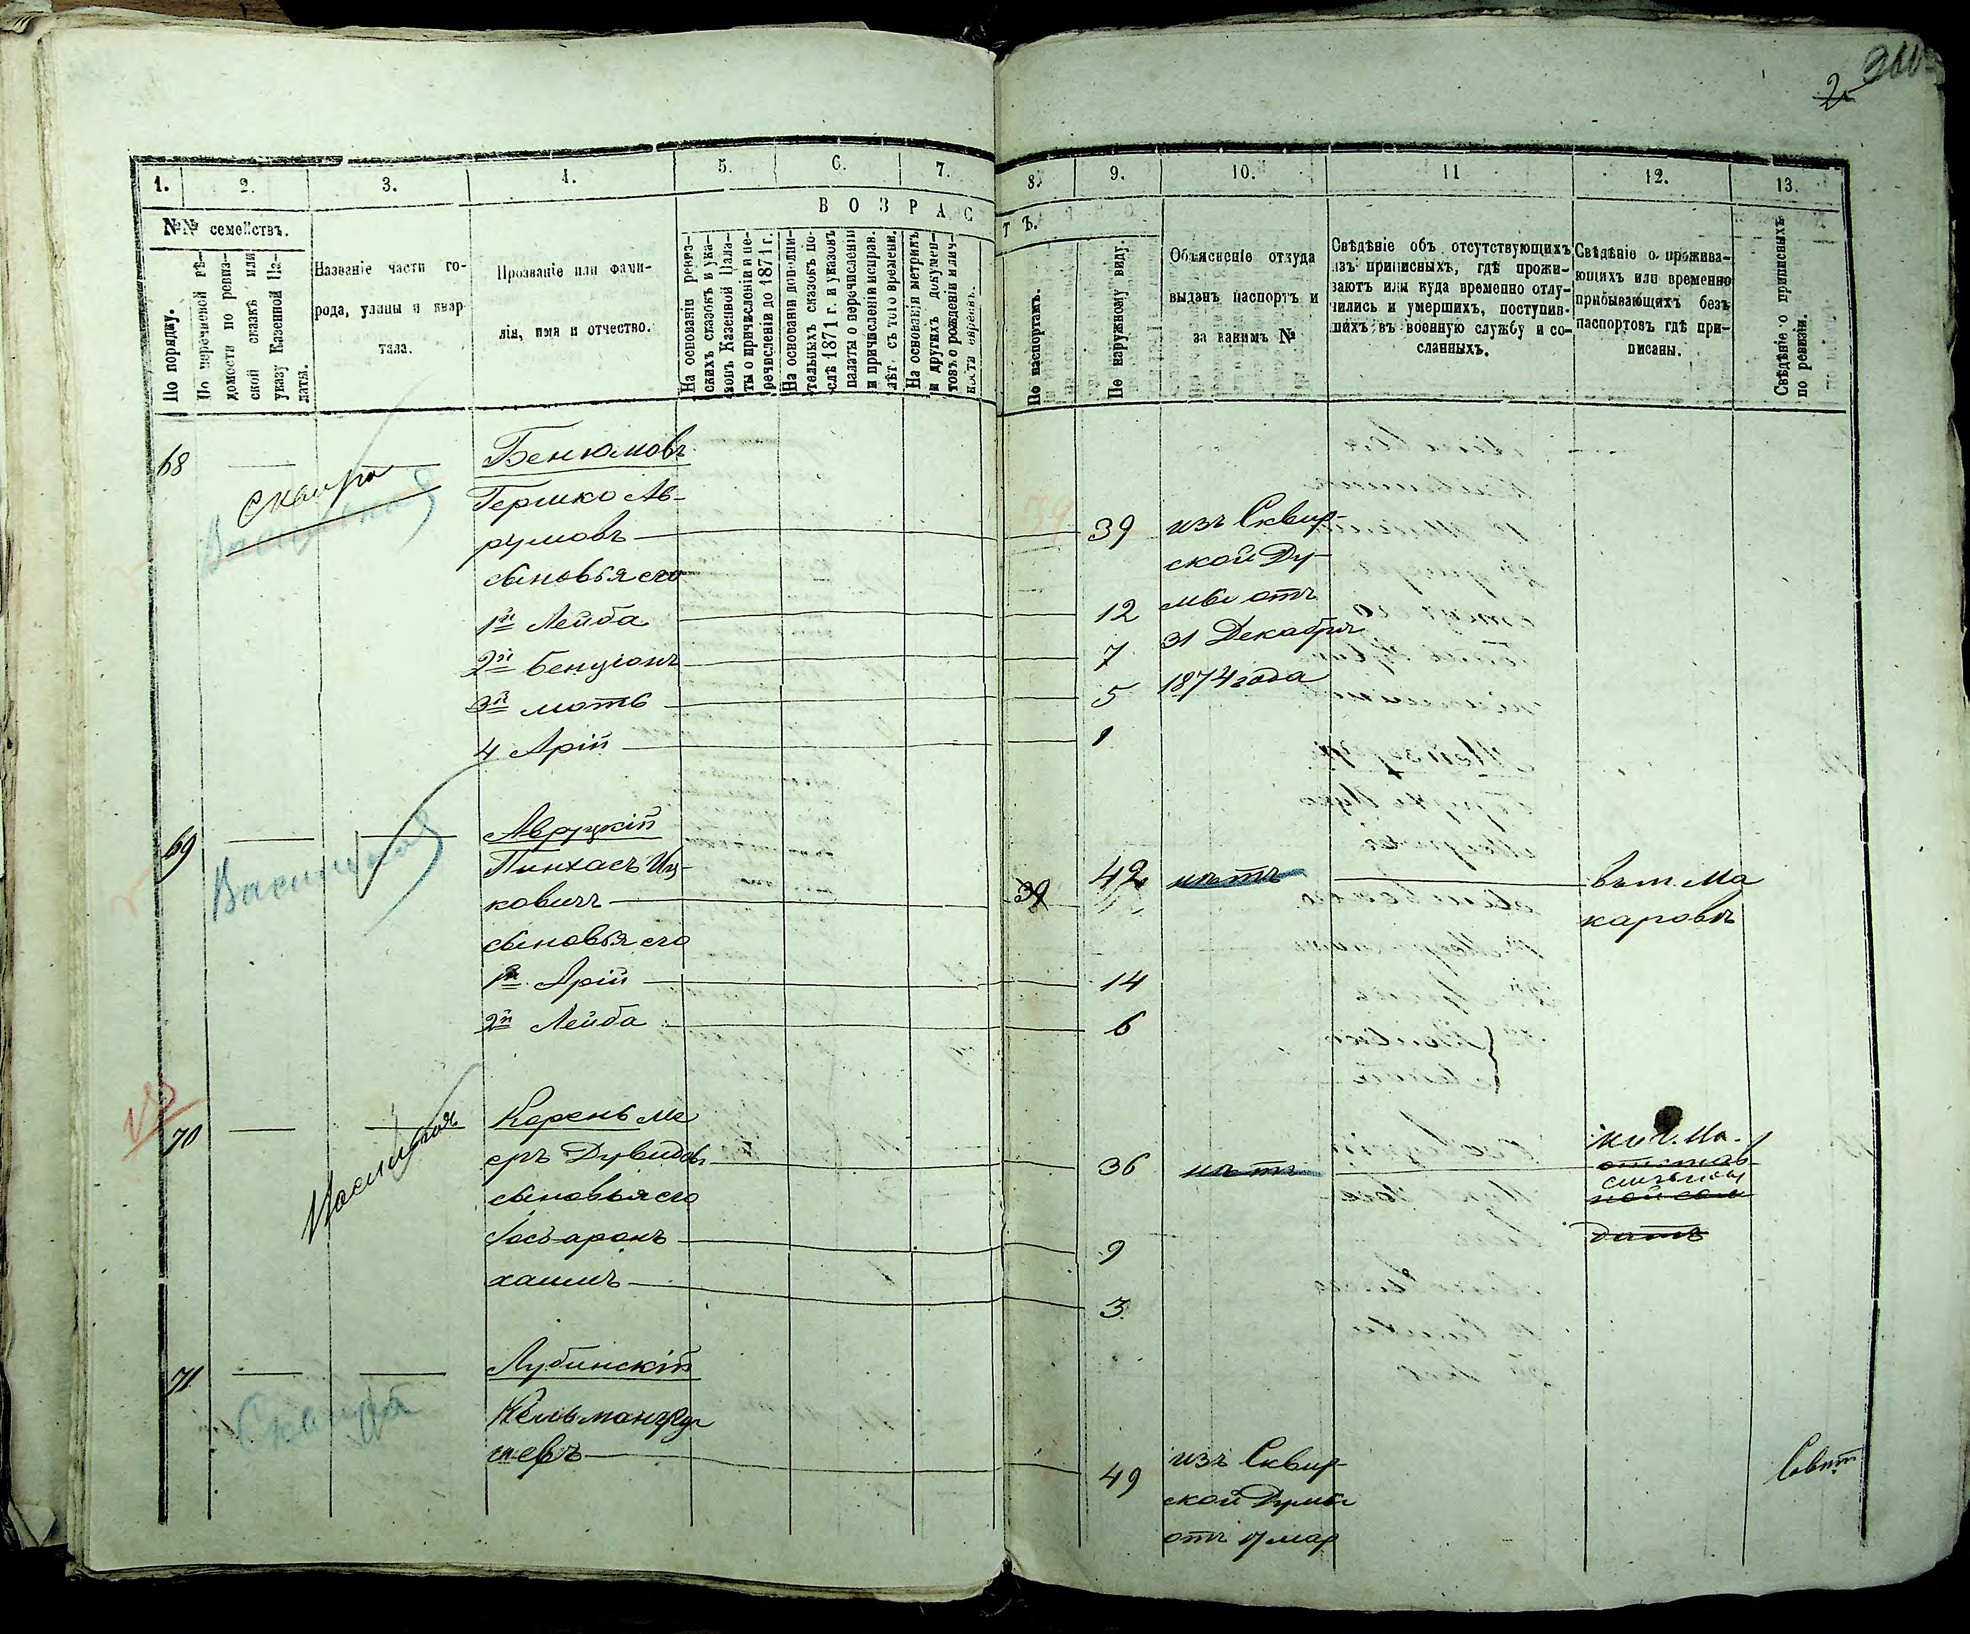 2
1. 2. 3. 4. 5. 6. 7. 8. 9. 10. 11 12. 13.
№№ семействъ.
По порядку.
По перечневой вѣ-
домости по ревиз-
ской сказкѣ или
указу Казенной Па-
латы.
Названіе части го-
рода, улицы и квар-
тала.
Прозваніе или фами-
лія, имя и отчество.
ВОЗРАС
тъ.
На основаніи ревиз-
скихъ сказокъ и ука-
зовъ Казенной Пала-
ты о причисленіи и пе-
речисленіи до 1871 г.
На основаніи дополни-
тельныхъ сказокъ по-
слѣ 1871 г. и указовъ
палаты о перечисленіи
и причисленіи исправ.
лѣт. съ того времени.
На основаніи метрикъ
и другихъ докумен-
товъ о рожденіи и лич-
ности евреевъ.
По паспортамъ.
По наружному виду.
Объясненіе откуда
выданъ паспортъ и
за какимъ №
Свѣдѣніе объ отсутствующихъ
изъ приписныхъ, гдѣ прожи-
ваютъ или куда временно отлу-
чились и умершихъ, поступив-
шихъ въ военную службу и со-
сланныхъ.
Свѣдѣніе о прожива-
ющихъ или временно
прибывающихъ безъ
паспортовъ гдѣ при-
писаны.
Свѣдѣніе о приписныхъ
по ревизіи.
68
Сквира
Бенюмовъ
Гершко Ав-
румовъ 39 изъ Сквир-
ской Ду-
сыновья его
мы отъ
1й Лейба 12
31 Декабря
2й Бенціонъ 7
1874 года
3й Моть 5
4 Арій 1
69
Васильков
Авруцкій
Пинхасъ Иц-
ковичъ 39 42 нѣтъ въ м. Ма
каровѣ
сыновья его
1й Арій 14
2й Лейба 6
70
Корень Ме
еръ Дувидов 36 нѣтъ
сыновья его
Іосъ аронъ 9
хаимъ 3
71
Сквира
Лубинскій
Кельманъ
49 изъ Сквир-
ской Думы
отъ 17 мар